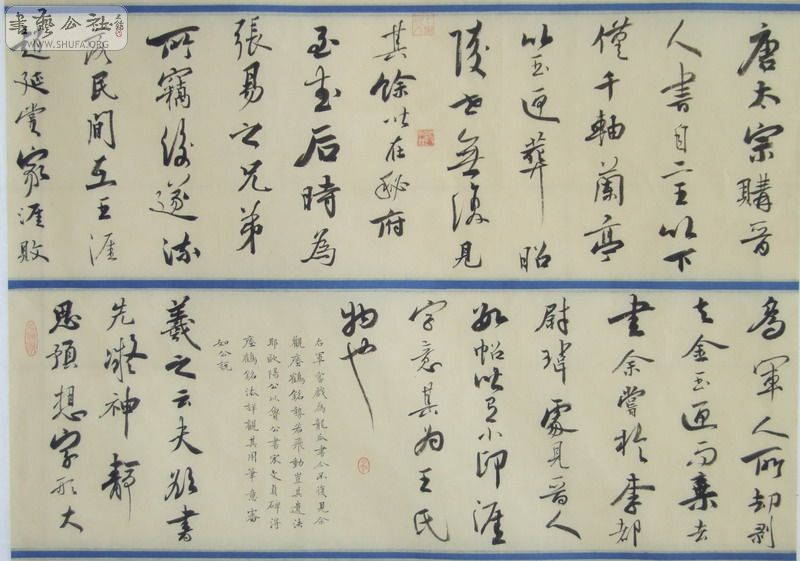 書藝公社
WWW.SHUFA.ORG
唐太宗購晉
人書自二王以下
僅千軸蘭亭
以玉匣葬昭
陵世無復見
其餘皆在秘府
至武后時為
張易之兄弟
所竊後遂流
落民間在王涯
延賞家涯敗
為軍人所劫剥
去金玉匣而棄去
書余嘗於李都
尉瑋處見晉人
数帖皆有小印涯
字意其為王氏
物也
右軍嘗戲為龍爪書今不復見余
觀瘞鶴銘勢若飛動豈其遺法
耶歐陽公以魯公書宋文貞碑得
瘞鶴銘法詳觀其用筆意審
如公說
羲之云夫欲書
先凝神靜
思預想字形大